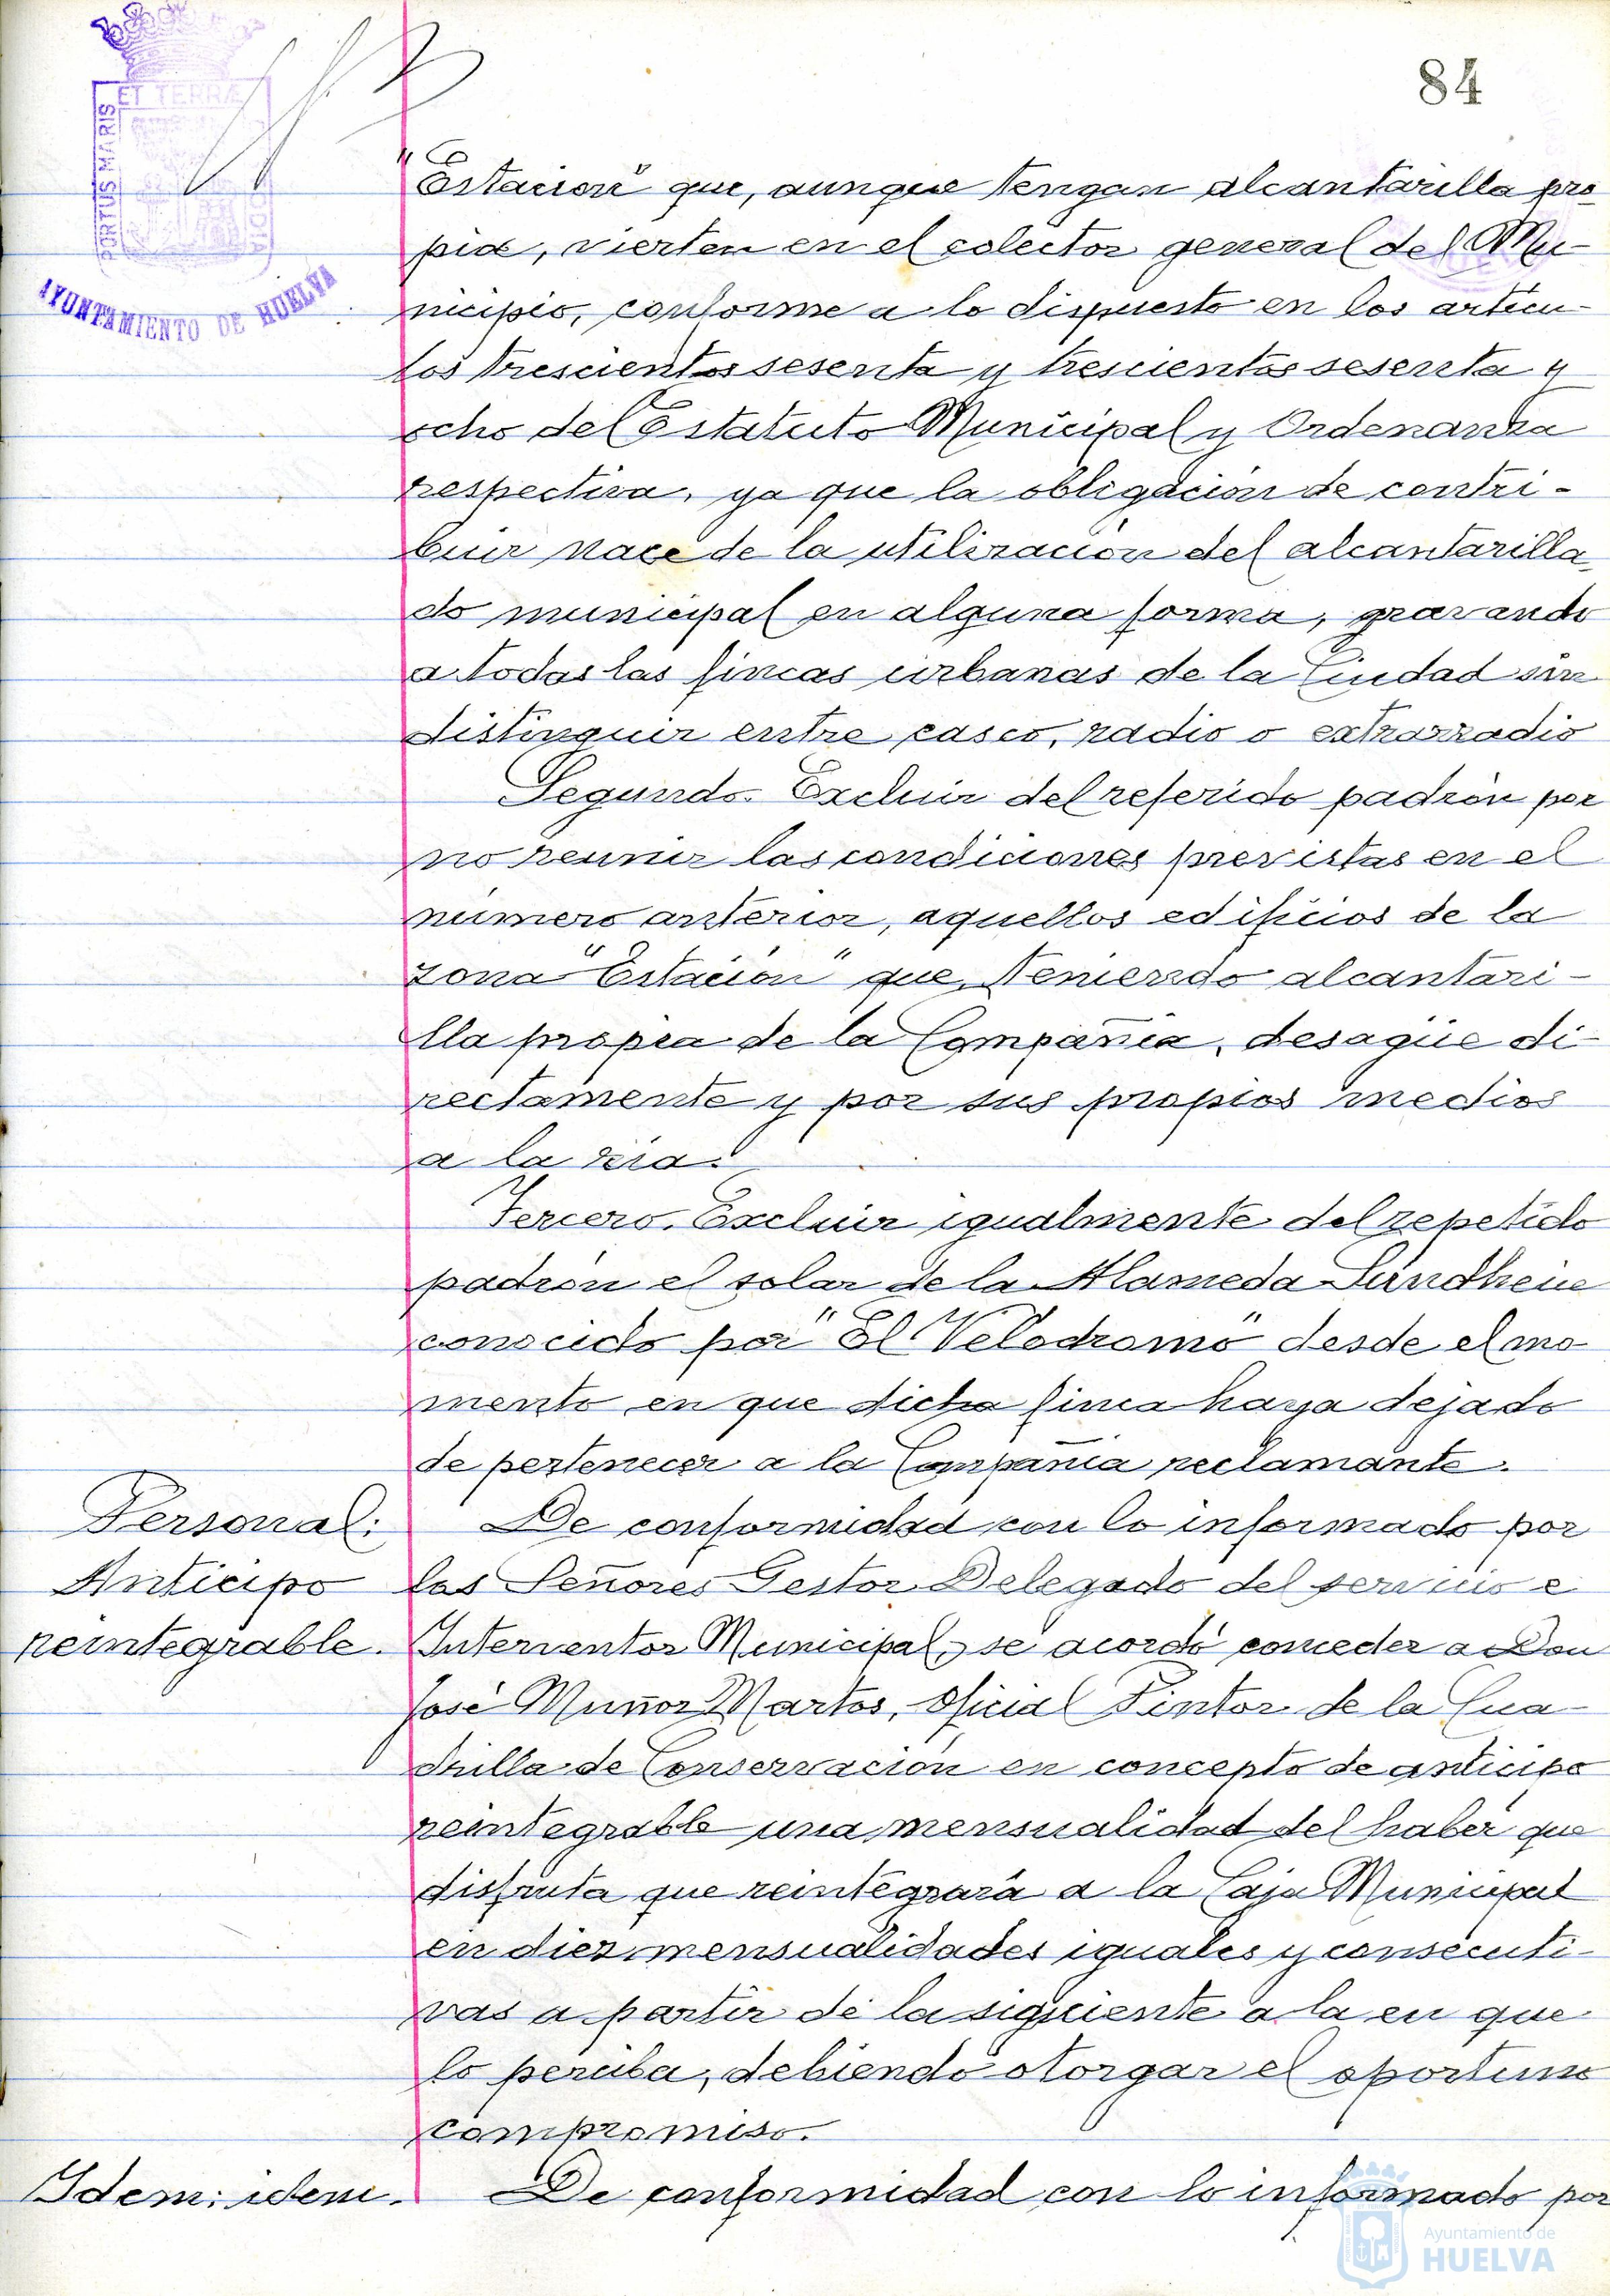 84
ET TERRÆ
PORTUS MARIS
AYUNTAMIENTO DE HUELVA
"Estación" que, aunque tengan alcantarilla pro-
pia, vierten en el colector general del Mu-
nicipio, conforme a lo dispuesto en los artícu-
los trescientos sesenta y trescientos sesenta y
ocho del Estatuto Municipal y Ordenanza
respectiva, ya que la obligación de contri-
buir nace de la utilización del alcantarilla-
do municipal en alguna forma, gravando
a todas las fincas urbanas de la Ciudad sin
distinguir entre casco, radio o extrarradio
Segundo. Excluir del referido padrón por
no reunir las condiciones previstas en el
número anterior, aquellos edificios de la
zona "Estación" que, teniendo alcantari-
lla propia de la Compañía, desagüe di-
rectamente y por sus propios medios
a la ría.
Tercero. Excluir igualmente del repetido
padrón el solar de la Alameda Sundheim
conocido por "El Velodromo" desde el mo-
mento en que dicha finca haya dejado
de pertenecer a la Compañía reclamante.
Personal:
Anticipo
reintegrable.
De conformidad con lo informado por
los Señores Gestor Delegado del servicio e
Interventor Municipal, se acordó conceder a Don
José Muñoz Martos, Oficial Pintor de la Cua-
drilla de Conservación en concepto de anticipo
reintegrable una mensualidad del haber que
disfruta que reintegrará a la Caja Municipal
en diez mensualidades iguales y consecuti-
vas a partir de la siguiente a la en que
lo perciba, debiendo otorgar el oportuno
compromiso.
Idem: idem.
De conformidad con lo informado por
Ayuntamiento de
HUELVA